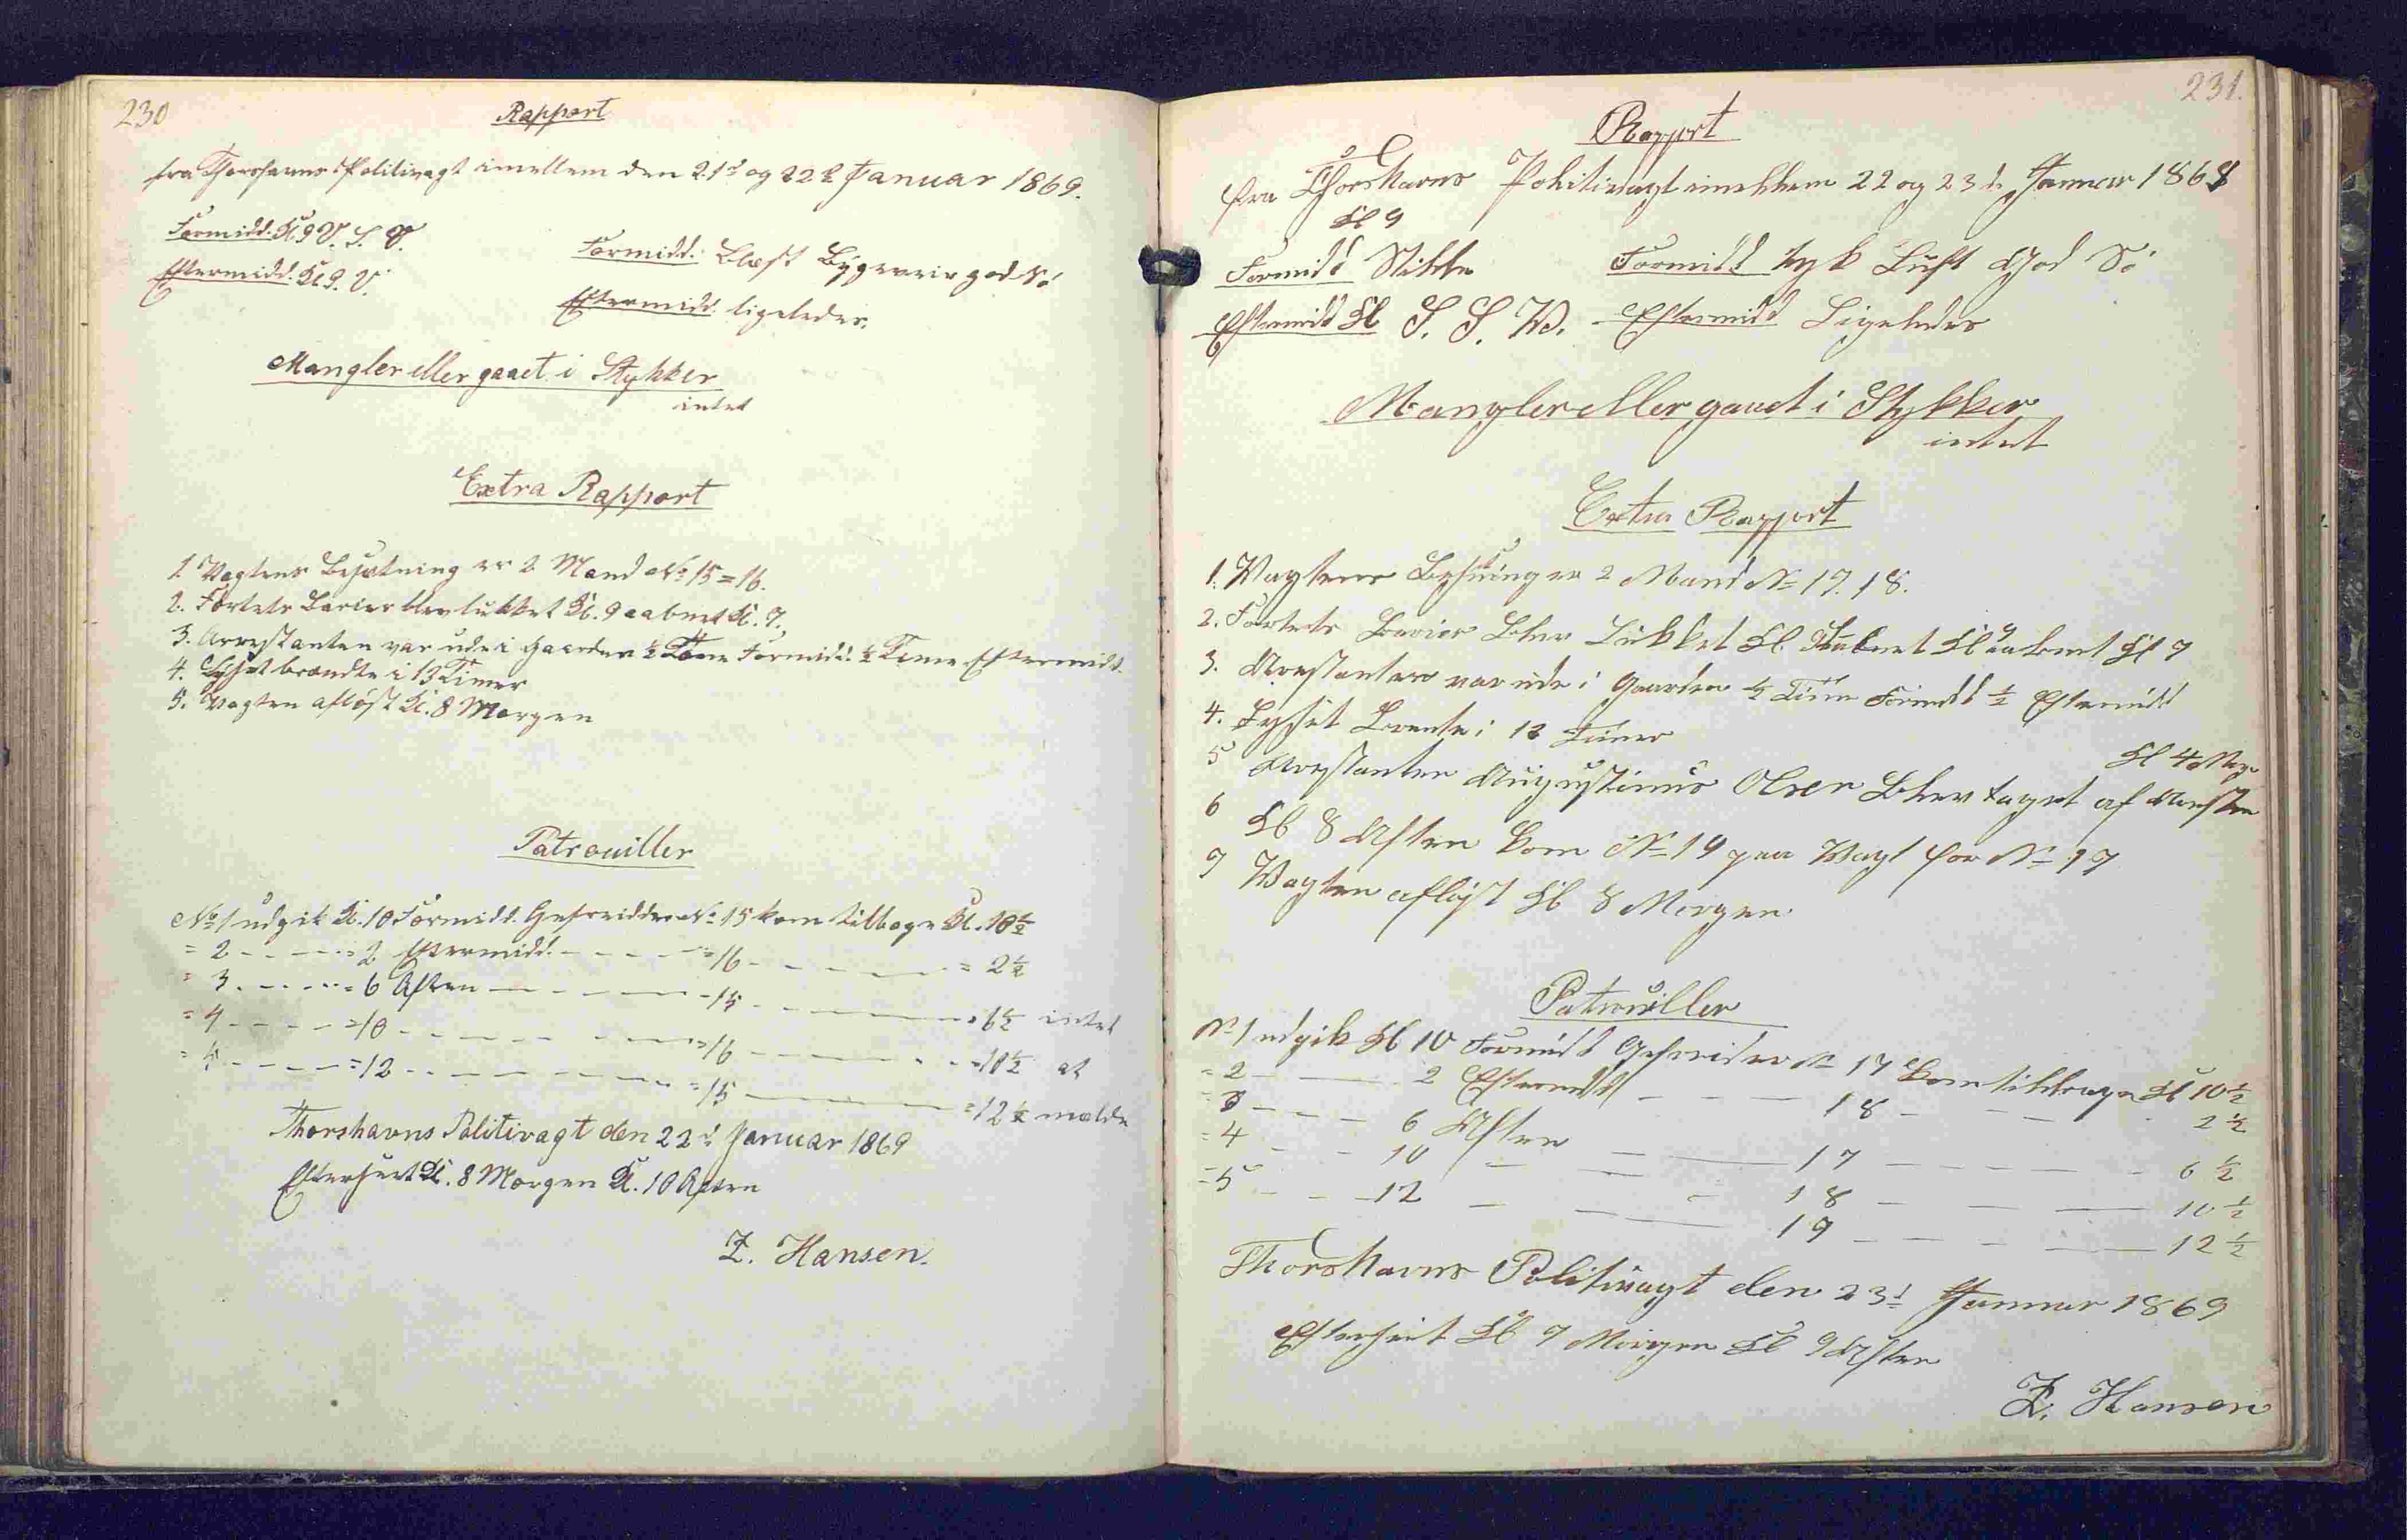 230
Rapport
fra Thorshavns Politivagt imellem den 21d og 22d Januar 1869.
Formidd. Kl. 9 V. S. V.
Eftermidd. Kl. 9. V.
Formidd. Blæst Bygeveir god Sö
Eftermidd. ligeledes.
Mangler eller gaaet i Stykker
intet
Extra Rapport
1. Vagtens Besætning er 2 Mand No 15=16.
2. Fortets Barier blev lukket Kl. 9 aabnet Kl. 7.
3. Arrestanten var ude i Gaarden ½ Time Formidd. ½ Time Eftermidd.
4. Lyset brændte i 13 Timer
5. Vagten aflöst Kl. 8 Morgen
Patrouiller
No 1 udgik Kl. 10 Formidd. Gefreidder No 15 kom tilbage Kl. 10½
= 2 - - - - = 2 Eftermidd. - - - - = 16 - - - - - = 2½
= 3 - - - - = 6 Aften - - - - - 15 - - - - - = 6½ intet
= 4 - - - - = 10 - - - - - = 16 - - - - - = 10½ at
= 5 - - - - = 12 - - - - - = 15 - - - - - = 12½ melde
Thorshavns Politivagt den 22d Januar 1869
Efterseet Kl. 8 Morgen Kl. 10 Aften
Z. Hansen.
231.
Rapport
fra Thorshavns Politivagt imellem 22 og 23d Januar 1868
Kl 9
Formidd Stille
Formidd tyk Luft God Sö
Eftermidd Kl S. S. W.
Eftermidd Ligeledes
Mangler eller gaaet i Stykker
intet
Extra Rapport
1. Vagtens Besætning er 2 Mand No 17. 18.
2. Fortets Barier Blev Lukket Kl 9 aabnet Kl 7
3. Arestanten var ude i Gaarden ½ Time Formidd ½ Eftermidd
4. Lyset Brente i 13 Timer
Kl 4
5 Arestanten Augustinus Olsen Blev taget af Aresten
6 Kl 8 Aften kom No 19 paa Vagt for No 17
7 Vagten aflöst Kl 8 Morgen
Patrouiller
No 1 udgik Kl 10 Formidd Gefreider No 17 kom tilbage Kl 10½
= 2 - - 2 Eftermidd - - - 18 - - - 2½
= 3 - - - 6 Aften - - - 17 - - - - 6½
= 4 - - 10 - - - 18 - - - 10½
= 5 - - - 12 - - - 19 - - - - 12½
Thorshavns Politivagt den 23d Januar 1869
Efterseet Kl 7 Morgen Kl 9 Aften
Z. Hansen